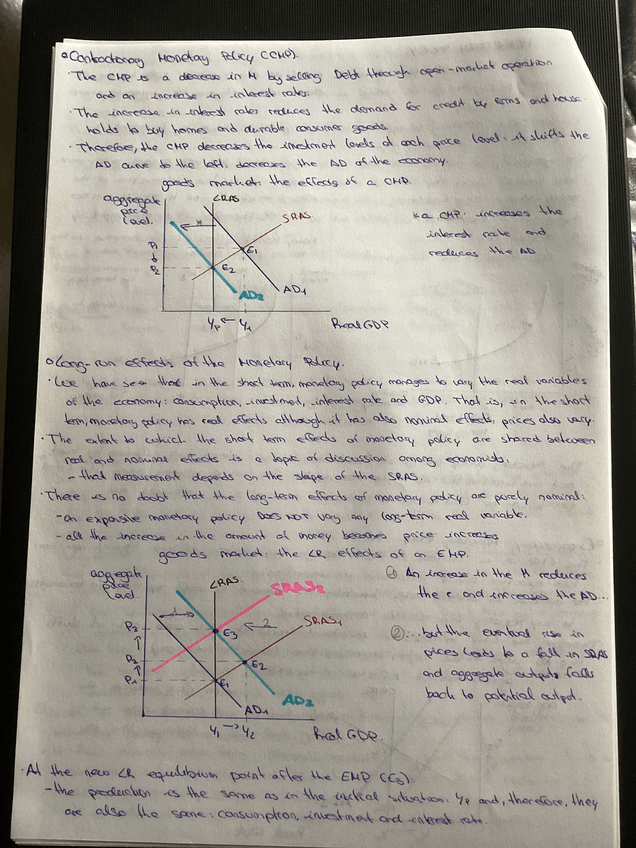 Contractionary Monetary Policy (CMP).
· The CMP is a decrease in M by selling Debt through open-market operation
and an increase in interest rates.
· The increase in interest rates reduces the demand for credit by firms and house-
holds to buy homes and durable consumer goods.
· Therefore, the CMP decreases the investment levels at each price level: it shifts the
AD curve to the left: decreases the AD of the economy.
goods market: the effects of a CMP.
aggregate
price
level.
LRAS
SRAS
P1
P2
E1
E2
AD2
AD1
Yp ← Y1
Real GDP
* a CMP: increases the
interest rate and
reduces the AD
Long-run effects of the Monetary Policy.
· We have see that in the short term, monetary policy manages to vary the real variables
of the economy: consumption, investment, interest rate and GDP. That is, in the short
term, monetary policy has real effects although it has also nominal effects: prices also vary.
· The extent to which the short term effects of monetary policy are shared between
real and nominal effects is a topic of discussion among economists.
- that measurement depends on the slope of the SRAS.
· There is no doubt that the long-term effects of monetary policy are purely nominal:
- an expansive monetary policy DOES NOT vary any long-term real variable.
- all the increase in the amount of money becomes price increases
goods market: the LR effects of an EMP.
aggregate
price
level.
LRAS
SRAS2
SRAS1
1
2
P3
P2
P1
E3
E2
E1
AD2
AD1
Y1 → Y2
Real GDP.
① An increase in the M reduces
the r and increases the AD...
② ... but the eventual rise in
prices leads to a fall in SRAS
and aggregate outputs falls
back to potential output.
· At the new LR equilibrium point after the EMP (E3).
- the production is the same as in the initial situation: Yp and, therefore, they
are also the same: consumption, investment and interest rate.